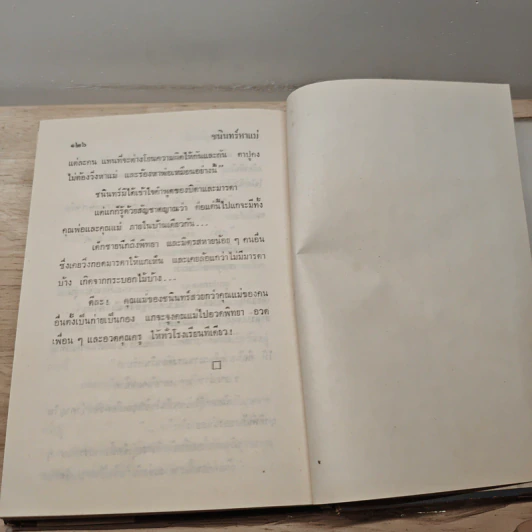 ๑๒๖ ชนินทร์หาแม่
แต่ละคน แทนที่จะต่างโยนความผิดให้กันและกัน ตาปุคง
ไม่ต้องวิ่งหาแม่ และร้องหาพ่อเหมือนอย่างนี้"
ชนินทร์มิได้เข้าใจคำพูดของบิดาและมารดา
แต่แกก็รู้ด้วยสัญชาตญาณว่า ต่อแต่นี้ไปแกจะมีทั้ง
คุณพ่อและคุณแม่ ภายในบ้านเดียวกัน...
เด็กชายนึกถึงพิทยา และมิตรสหายน้อย ๆ คนอื่น
ซึ่งเคยวิ่งกอดมารดาให้แกเห็น และเคยล้อแกว่าไม่มีมารดา
บ้าง เกิดจากกระบอกไม้บ้าง...
ดีละ! คุณแม่ของชนินทร์สวยกว่าคุณแม่ของคน
อื่นตั้งเป็นก่ายเป็นกอง แกจะจูงคุณแม่ไปอวดพิทยา อวด
เพื่อน ๆ และอวดคุณครู ให้ทั่วโรงเรียนทีเดียว!